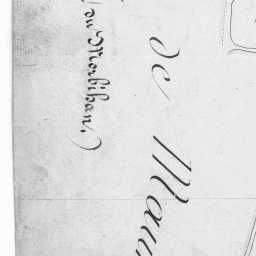 (en Morbihan.)
de Mou